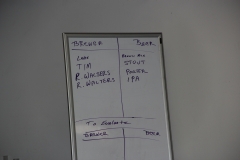 BREWER BEER
LARY BROWN ALE
TIM STOUT
R. WALTERS PORTER
R. WALTERS IPA
To Evaluate
BREWER BEER